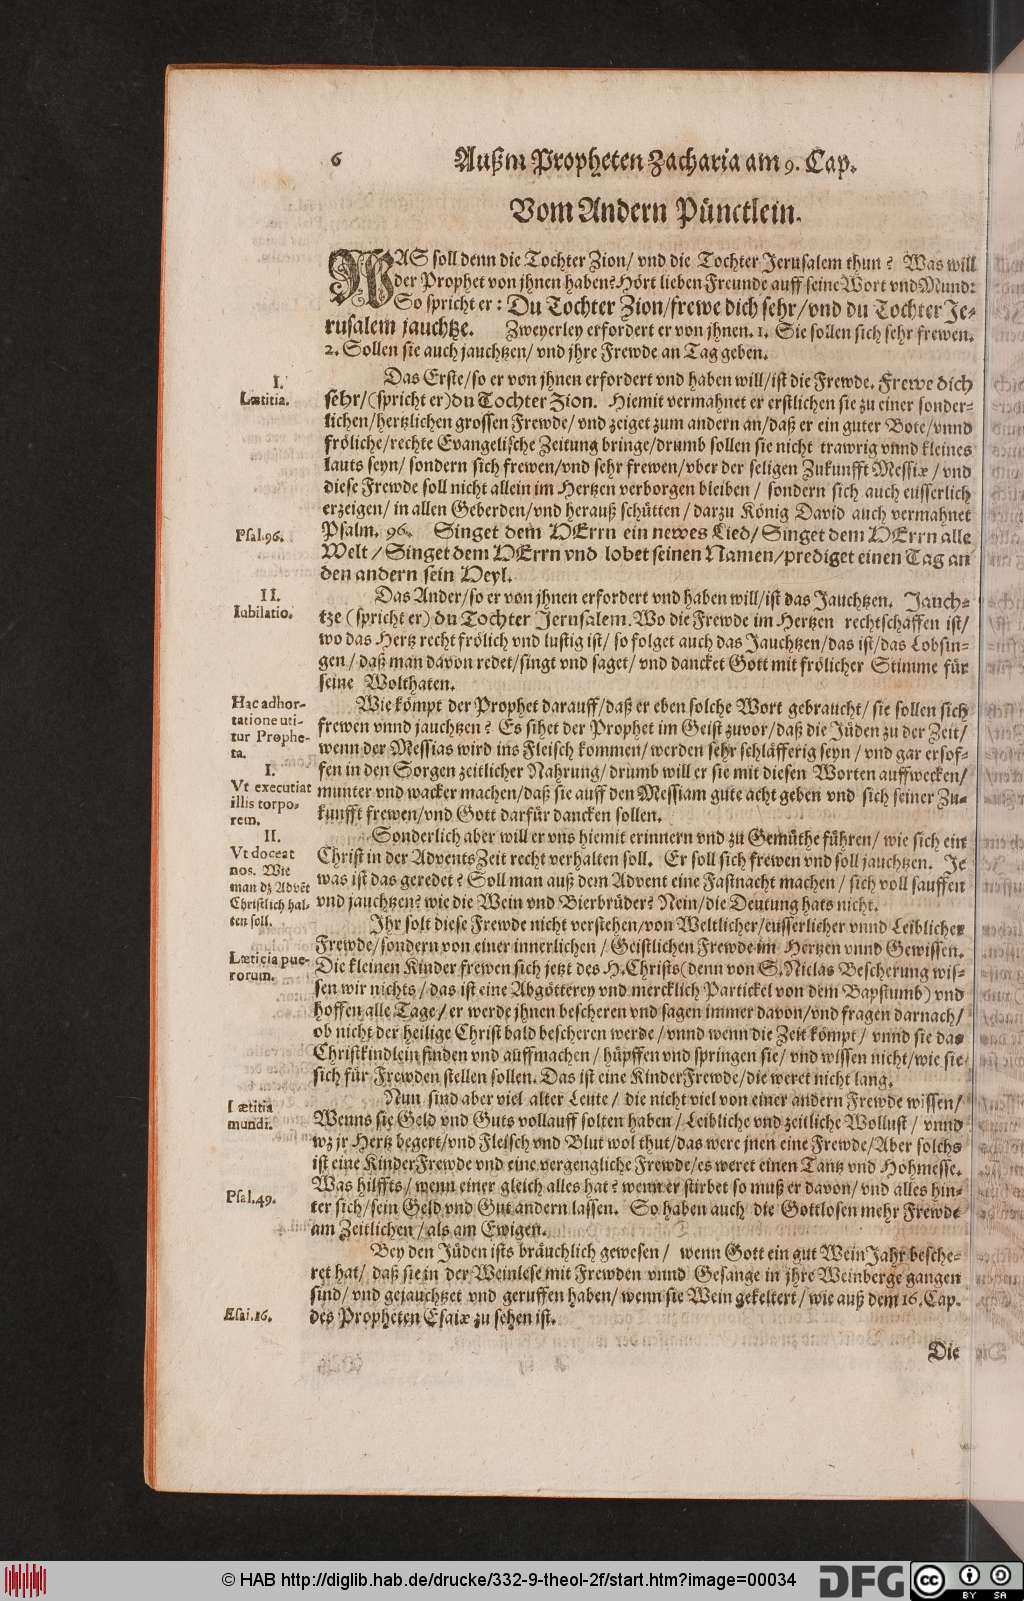 6
Außm Propheten Zacharia am 9. Cap.
Vom Andern Pünctlein.
WAS soll denn die Tochter Zion/ vnd die Tochter Jerusalem thun? Was will
der Prophet von jhnen haben? Hört lieben Freunde auff seine Wort vnd Mund:
So spricht er: Du Tochter Zion/frewe dich sehr/vnd du Tochter Je-
rusalem jauchtze. Zweyerley erfordert er von jhnen. 1. Sie sollen sich sehr frewen.
2. Sollen sie auch jauchtzen/ vnd jhre Frewde an Tag geben.
I.
Lætitia.
Das Erste/so er von jhnen erfordert vnd haben will/ist die Frewde. Frewe dich
sehr/(spricht er)du Tochter Zion. Hiemit vermahnet er erstlichen sie zu einer sonder-
lichen/hertzlichen grossen Frewde/ vnd zeiget zum andern an/daß er ein guter Bote/vnnd
fröliche/rechte Evangelische Zeitung bringe/drumb sollen sie nicht trawrig vnnd kleines
lauts seyn/ sondern sich frewen/vnd sehr frewen/vber der seligen Zukunfft Messiæ/ vnd
diese Frewde soll nicht allein im Hertzen verborgen bleiben/ sondern sich auch eusserlich
erzeigen/ in allen Geberden/vnd herauß schütten/ darzu König David auch vermahnet
Psal.96.
Psalm. 96. Singet dem HErrn ein newes Lied/ Singet dem HErrn alle
Welt/ Singet dem HErrn vnd lobet seinen Namen/prediget einen Tag an
den andern sein Heyl.
II.
Iubilatio.
Das Ander/so er von jhnen erfordert vnd haben will/ist das Jauchtzen. Jauch-
tze (spricht er) du Tochter Jerusalem. Wo die Frewde im Hertzen rechtschaffen ist/
wo das Hertz recht frölich vnd lustig ist/ so folget auch das Jauchtzen/das ist/das Lobsin-
gen/ daß man davon redet/singt vnd saget/ vnd dancket Gott mit frölicher Stimme für
seine Wolthaten.
Hac adhor-
tatione uti-
tur Prophe-
ta.
I.
Vt executiat
illis torpo-
rem.
Wie kömpt der Prophet darauff/daß er eben solche Wort gebraucht/ sie sollen sich
frewen vnnd jauchtzen? Es sihet der Prophet im Geist zuvor/daß die Jüden zu der Zeit/
wenn der Messias wird ins Fleisch kommen/werden sehr schläfferig seyn/ vnd gar ersof-
fen in den Sorgen zeitlicher Nahrung/ drumb will er sie mit diesen Worten auffwecken/
munter vnd wacker machen/daß sie auff den Messiam gute acht geben vnd sich seiner Zu-
kunfft frewen/vnd Gott darfür dancken sollen.
II.
Vt doceat
nos. Wie
man dz Advēt
Christlich hal-
ten soll.
Sonderlich aber will er vns hiemit erinnern vnd zu Gemüthe führen/ wie sich ein
Christ in der AdventsZeit recht verhalten soll. Er soll sich frewen vnd soll jauchtzen. Je
was ist das geredet? Soll man auß dem Advent eine Fastnacht machen/ sich voll sauffen
vnd jauchtzen? wie die Wein vnd Bierbrüder? Nein/die Deutung hats nicht.
Ihr solt diese Frewde nicht verstehen/von Weltlicher/eusserlicher vnnd Leiblicher
Frewde/sondern von einer innerlichen/ Geistlichen Frewde im Hertzen vnnd Gewissen.
Læticia pue-
rorum.
Die kleinen Kinder frewen sich jetzt des H.Christs(denn von S.Niclas Bescherung wis-
sen wir nichts/das ist eine Abgötterey vnd mercklich Partickel von dem Bapstumb) vnd
hoffen alle Tage/ er werde jhnen bescheren vnd sagen immer davon/vnd fragen darnach/
ob nicht der heilige Christ bald bescheren werde/ vnnd wenn die Zeit kömpt/ vnnd sie das
Christkindlein finden vnd auffmachen/ hüpffen vnd springen sie/ vnd wissen nicht/wie sie
sich für Frewden stellen sollen. Das ist eine KinderFrewde/die weret nicht lang.
Lætitia
mundi.
Nun sind aber viel alter Leute/ die nicht viel von einer andern Frewde wissen/
Wenns sie Geld vnd Guts vollauff solten haben/ Leibliche vnd zeitliche Wollust/ vnnd
wz jr Hertz begert/vnd Fleisch vnd Blut wol thut/das were jnen eine Frewde/Aber solchs
ist eine KinderFrewde vnd eine vergengliche Frewde/es weret einen Tantz vnd Hohmesse.
Psal.49.
Was hilffts/ wenn einer gleich alles hat? wenn er stirbet so muß er davon/ vnd alles hin-
ter sich/sein Geld vnd Gut andern lassen. So haben auch die Gottlosen mehr Frewde
am Zeitlichen/als am Ewigen.
Bey den Jüden ists bräuchlich gewesen/ wenn Gott ein gut WeinJahr besche-
ret hat/ daß sie in der Weinlese mit Frewden vnnd Gesange in jhre Weinberge gangen
sind/ vnd gejauchtzet vnd geruffen haben/ wenn sie Wein gekeltert/ wie auß dem 16. Cap.
Esai.16.
des Propheten Esaiæ zu sehen ist.
Die
© HAB http://diglib.hab.de/drucke/332-9-theol-2f/start.htm?image=00034
DFG
cc BY SA